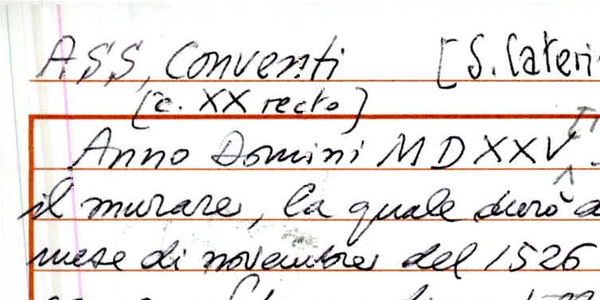 A.S.S, Conventi [S. Cateri
[c. XX recto]
Anno Domini MDXXV.
il murare, la quale durò a
mese di novembre del 1526